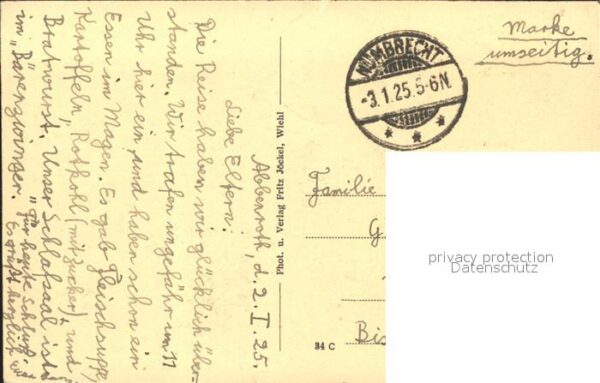 Abbenroth, d. 2. I. 25.
Liebe Eltern.
Die Reise haben wir glücklich über-
standen. Wir trafen ungefähr um 11
Uhr hier ein und haben schon ein
Essen im Magen. Es gab Fleischsuppe,
Kartoffeln, Rotkohl (mit Zucker) und
Bratwurst. Unser Schlafsaal ist
im „Bärenzwinger."
Für heute Schluß.
Es grüßt herzlich
Phot. u. Verlag Fritz Jöckel, Wiehl
34 C
Marke
umseitig.
NÜMBRECHT
-3.1.25.5-6N.
Familie
G
Bis
privacy protection
Datenschutz